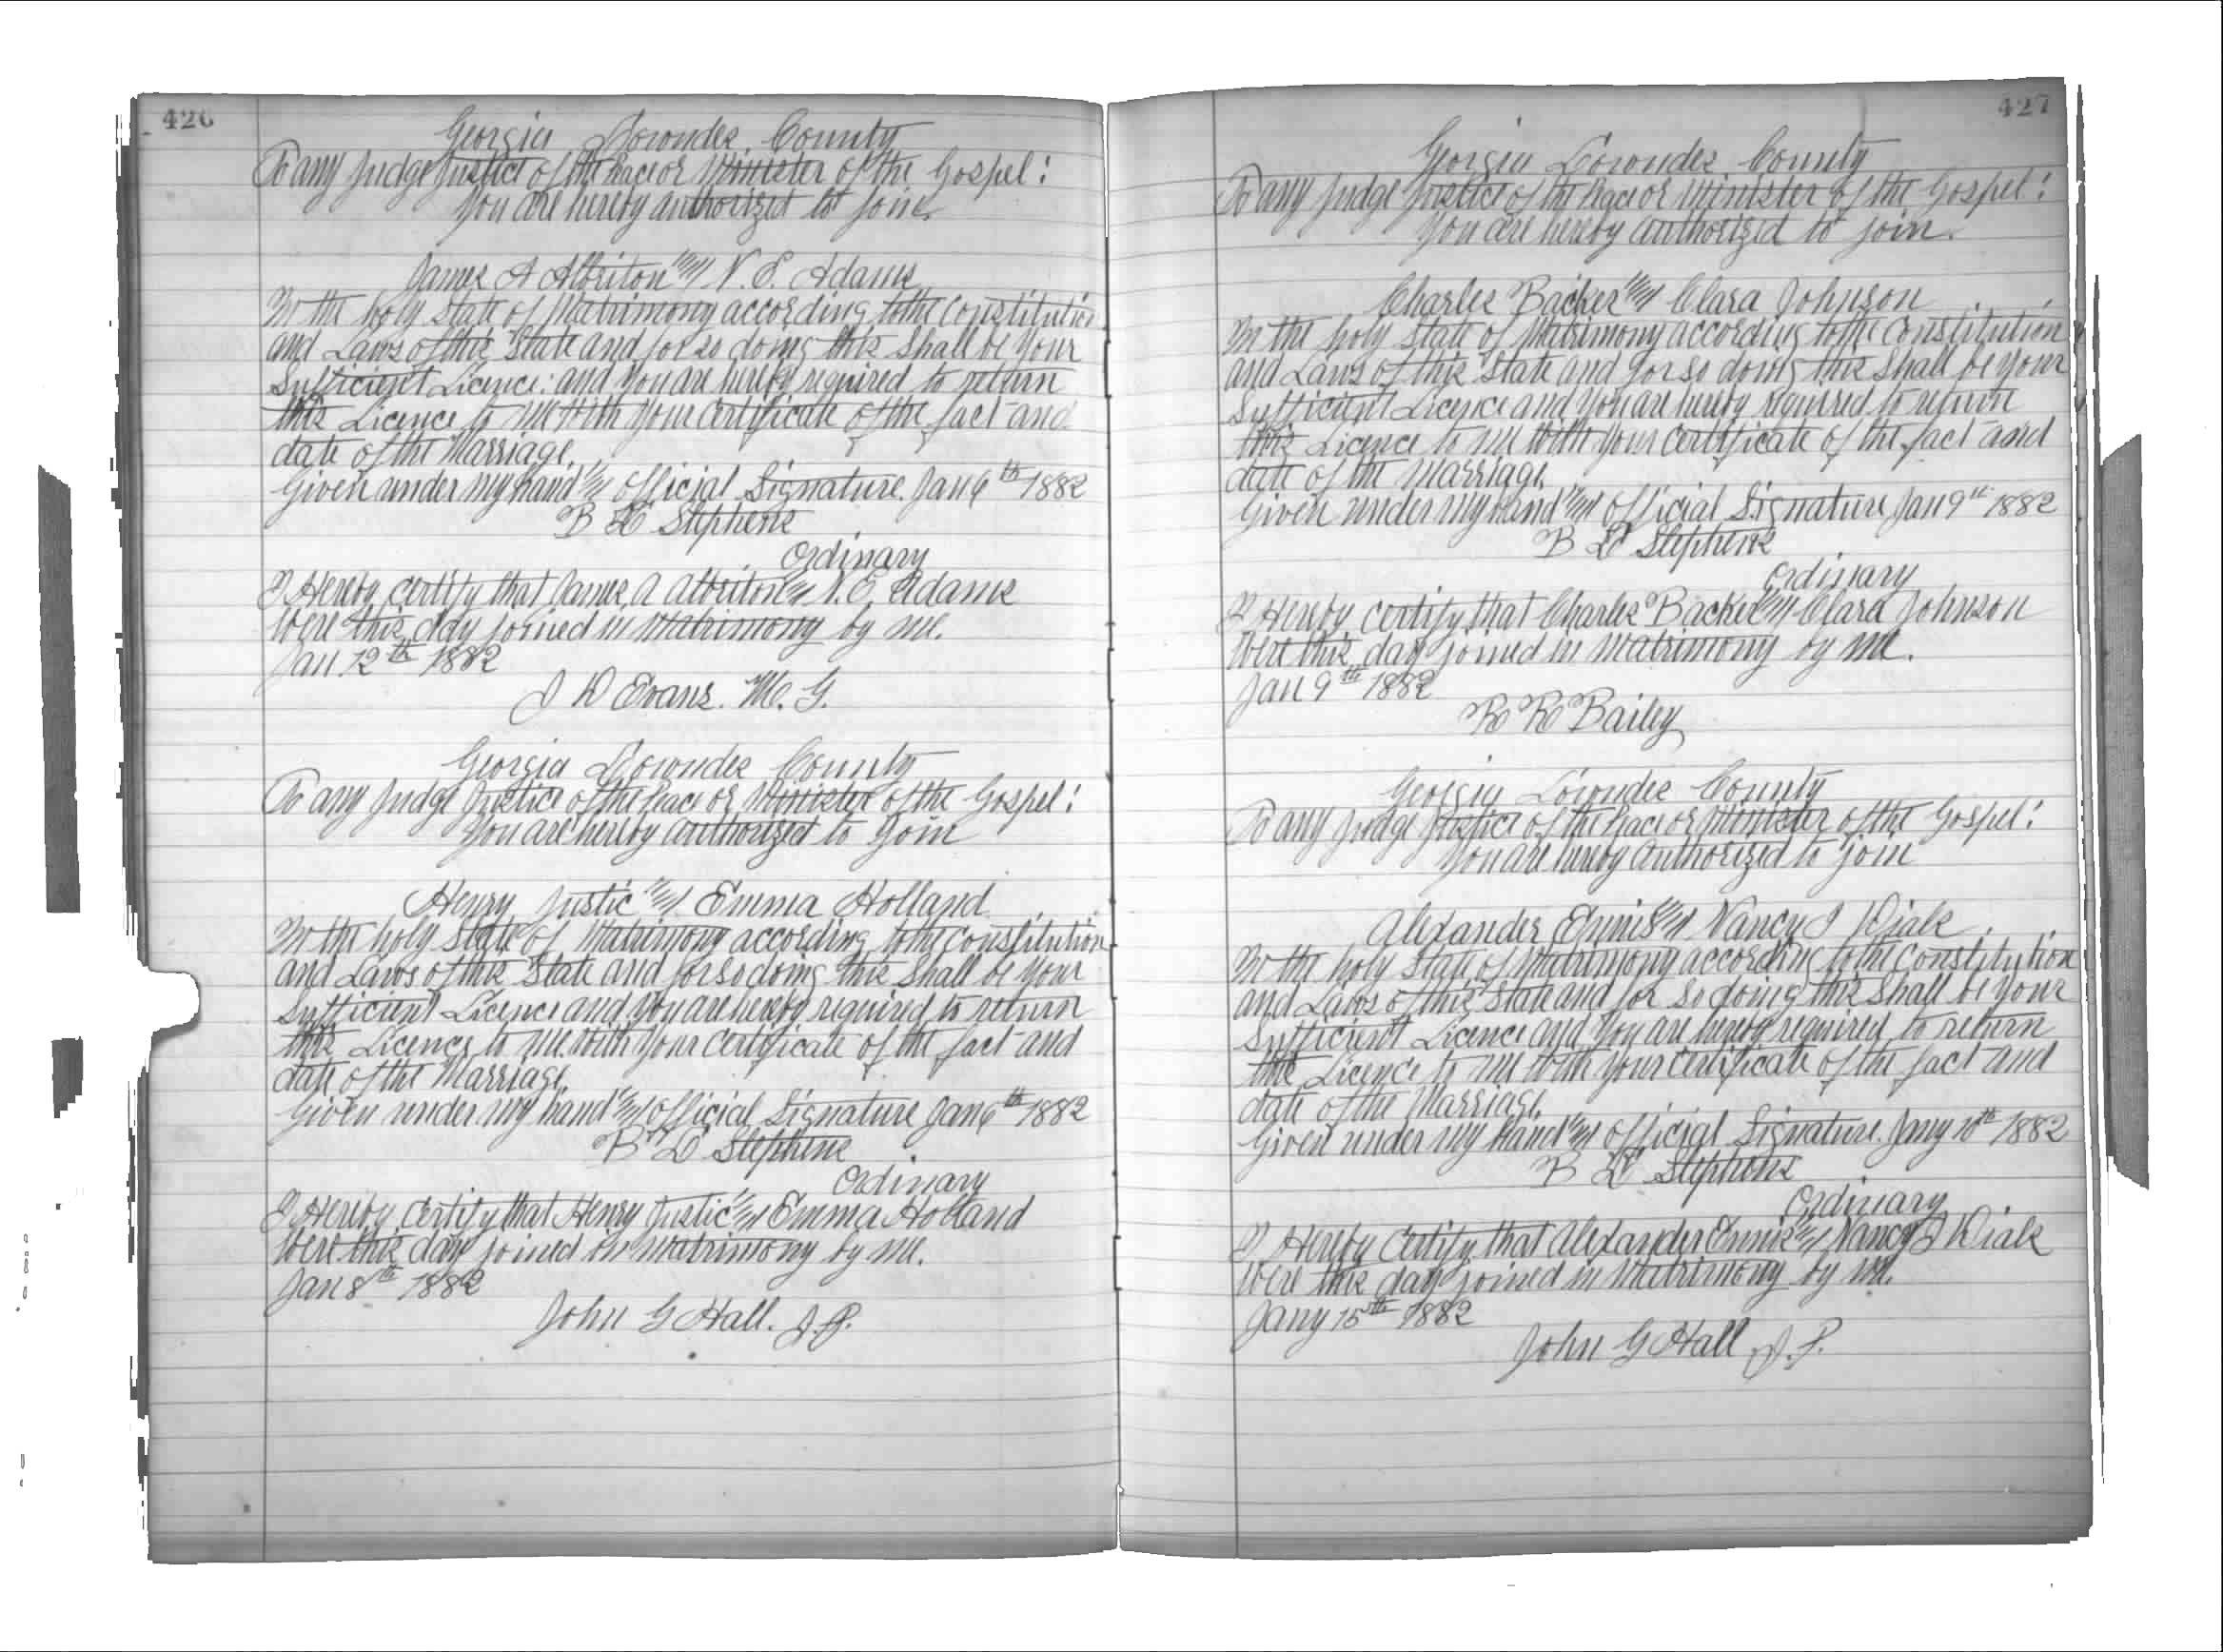 426
Georgia Lowndes County
To any Judge Justice of the Peace or Minister of the Gospel:
You are hereby authorized to join.
James A Albriton and N. E. Adams
In the holy State of Matrimony according to the Constitution
and Laws of this State and for so doing this Shall be Your
Sufficient Licence: and You are hereby required to return
this Licence to me With Your Certificate of the fact and
date of the Marriage.
Given under my hand and official Signature. Jan 6th 1882
Stephens
Ordinary
I Hereby Certify that James A Albriton and N. E. Adams
Were this day joined in Matrimony by me.
Jan 12th 1882
J D Evans. M. G.
Georgia Lowndes County
To any Judge Justice of the Peace or Minister of the Gospel:
You are hereby authorized to Join
Henry Justic and Emma Holland
In the holy State of Matrimony according to the Constitution
and Laws of this State and for so doing this Shall be Your
Sufficient Licence and You are hereby required to return
this Licence to me With Your Certificate of the fact and
date of the Marriage.
Given under my hand and official Signature Jan 6th 1882
Stephens
Ordinary
I Hereby Certify that Henry Justic and Emma Holland
Were this day joined in Matrimony by me.
Jan 8th 1882
John G Hall. J. P.
427
Georgia Lowndes County
To any Judge Justice of the Peace or Minister of the Gospel:
You are hereby authorized to join.
Charles Backer and Clara Johnson
In the holy State of Matrimony according to the Constitution
and Laws of this State and for so doing this Shall be Your
Sufficient Licence and You are hereby required to return
this Licence to me With Your Certificate of the fact and
date of the Marriage.
Given under my hand and official Signature Jan 9th 1882
Stephens
Ordinary
I Hereby Certify that Charles Backer and Clara Johnson
Were this day joined in Matrimony by me.
Jan 9th 1882
R R Bailey
Georgia Lowndes County
To any Judge Justice of the Peace or Minister of the Gospel:
You are hereby authorized to join
Alexander Ennis and Nancy J Dials
In the holy State of Matrimony according to the Constitution
and Laws of this State and for so doing this Shall be Your
Sufficient Licence and You are hereby required to return
this Licence to me With Your Certificate of the fact and
date of the Marriage.
Given under my hand and official Signature. Jany 10th 1882
Stephens
Ordinary
I Hereby Certify that Alexander Ennis and Nancy J Dials
Were this day joined in Matrimony by me.
Jany 15th 1882
John G Hall J. P.